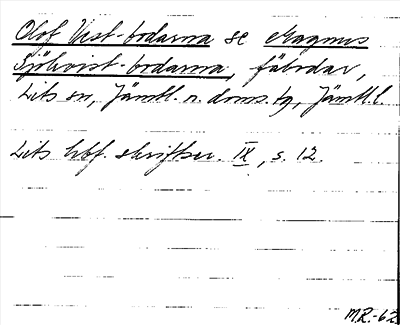 Olof Väst-bodarna se Magnus
Sjökvist-bodarna, fäbodar,
Lits sn, Jämtl. n. doms. tg, Jämtl. l.
Lits hbf. skriftser. IX, s. 12.
M.R.-62